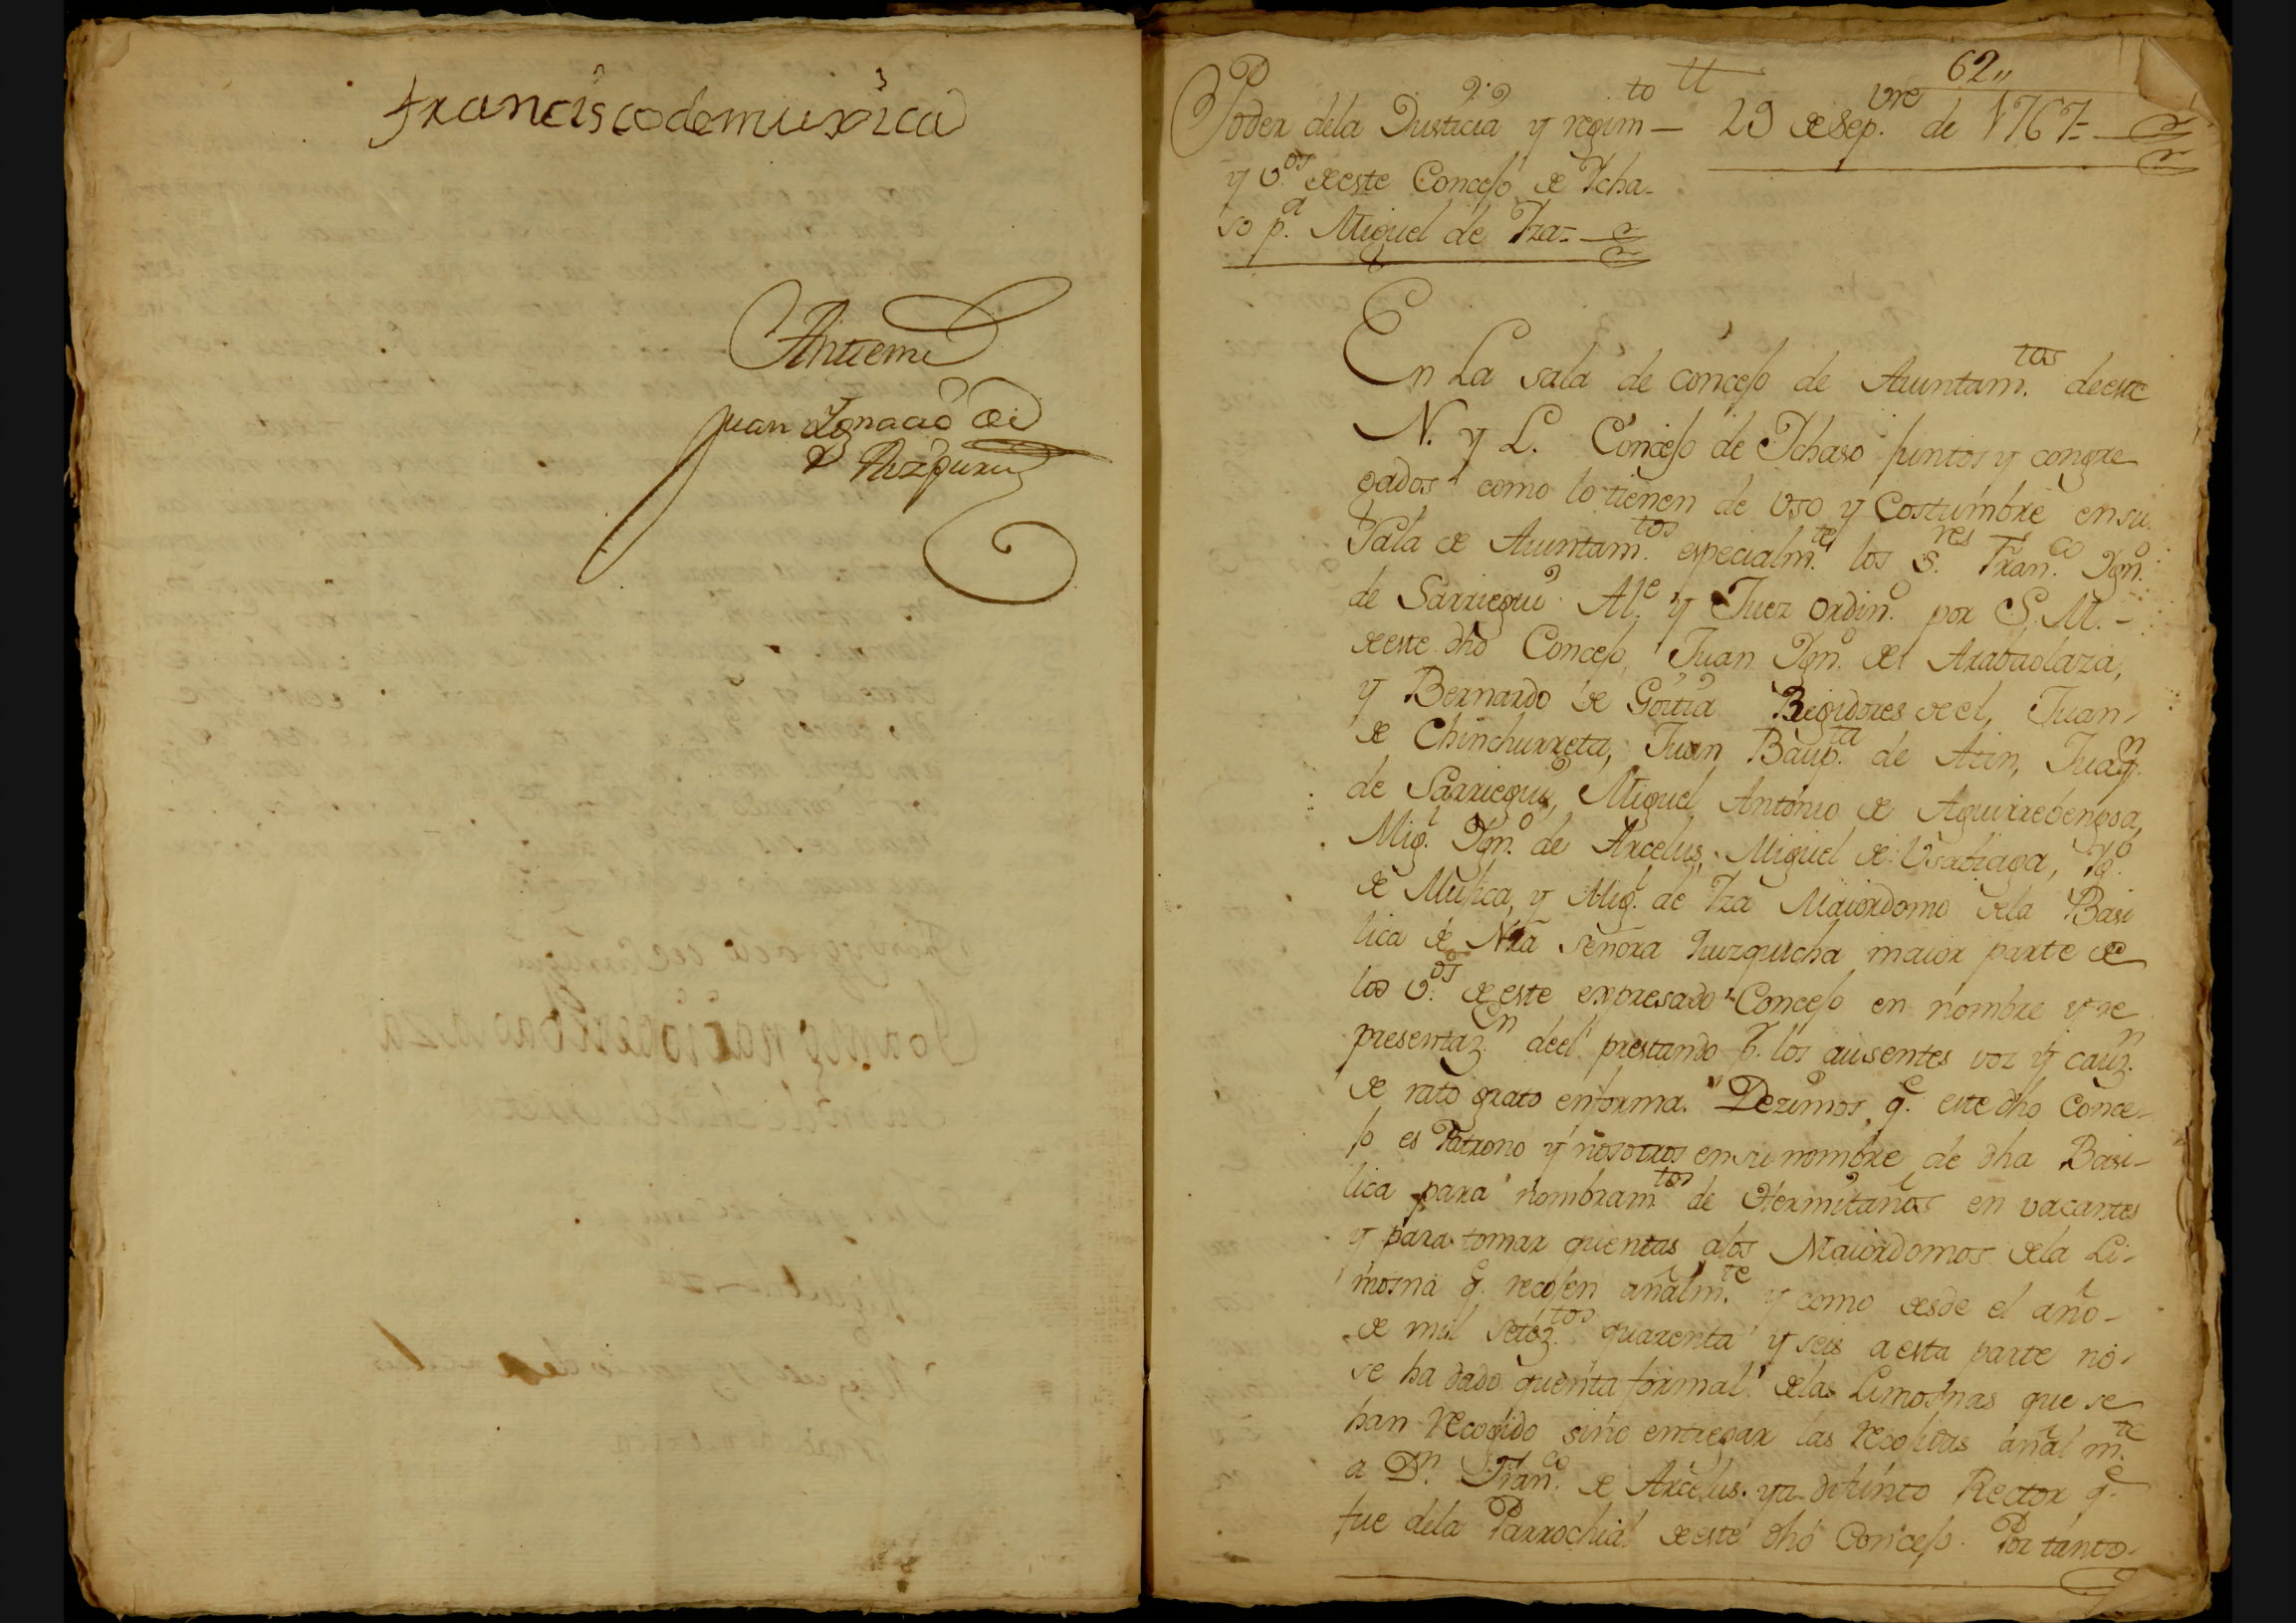 Francisco de muxica
Ante mi
Juan Ignacio de
Aizpuru
62,,
Poder dela Justicia y regim.to — 29 de Sep.vre de 1767=
y v.os de este Concejo de Ycha-
so p.a Miguel de Yza=
En La sala de concejo de Aiuntam.tos de este
N. y L. Concejo de Ychaso juntos y congre
gados como lo tienen de uso y Costumbre en su
Sala de Aiuntam.tos especialm.te los S.res Fran.co Ygn.o
de Sarriegui Al.e y Juez ordin.o por S. M. -
de este dho Concejo, Juan Ygn.o de Arabaolaza,
y Bernardo de Goitia Regidores de el, Juan
de Chinchurreta, Juan Baup.ta de Atin, Juaq.n
de Sarriegui, Miguel Antonio de Aguirrebengoa,
Mig.l Ygn.o de Arcelus, Miguel de Usabiaga,
de Mujica, y Mig.l de Yza Maiordomo dela Basi
lica de Nra Señora Quizquicha maior parte de
los v.os de este expresado Concejo en nombre y re
presentaz.on de el prestando p.r los ausentes voz y cauz.n
de rato grato en forma. Dezimos q.e este dho Conce-
jo es Patrono y nosotros en su nombre de dha Basi-
lica para nombram.tos de Hermitaños en vacantes
y para tomar quentas alos Maiordomos dela Li-
mosna q.e recojen añalm.te y como desde el año -
de mil setez.tos quarenta y seis a esta parte no
se ha dado quenta formal delas Limosnas que se
han recogido sino entregar las recojidas añal m.te
a D.n Fran.co de Arcelus ya difunto Rector q.e
fue dela Parrochial de este dho Concejo. Por tanto